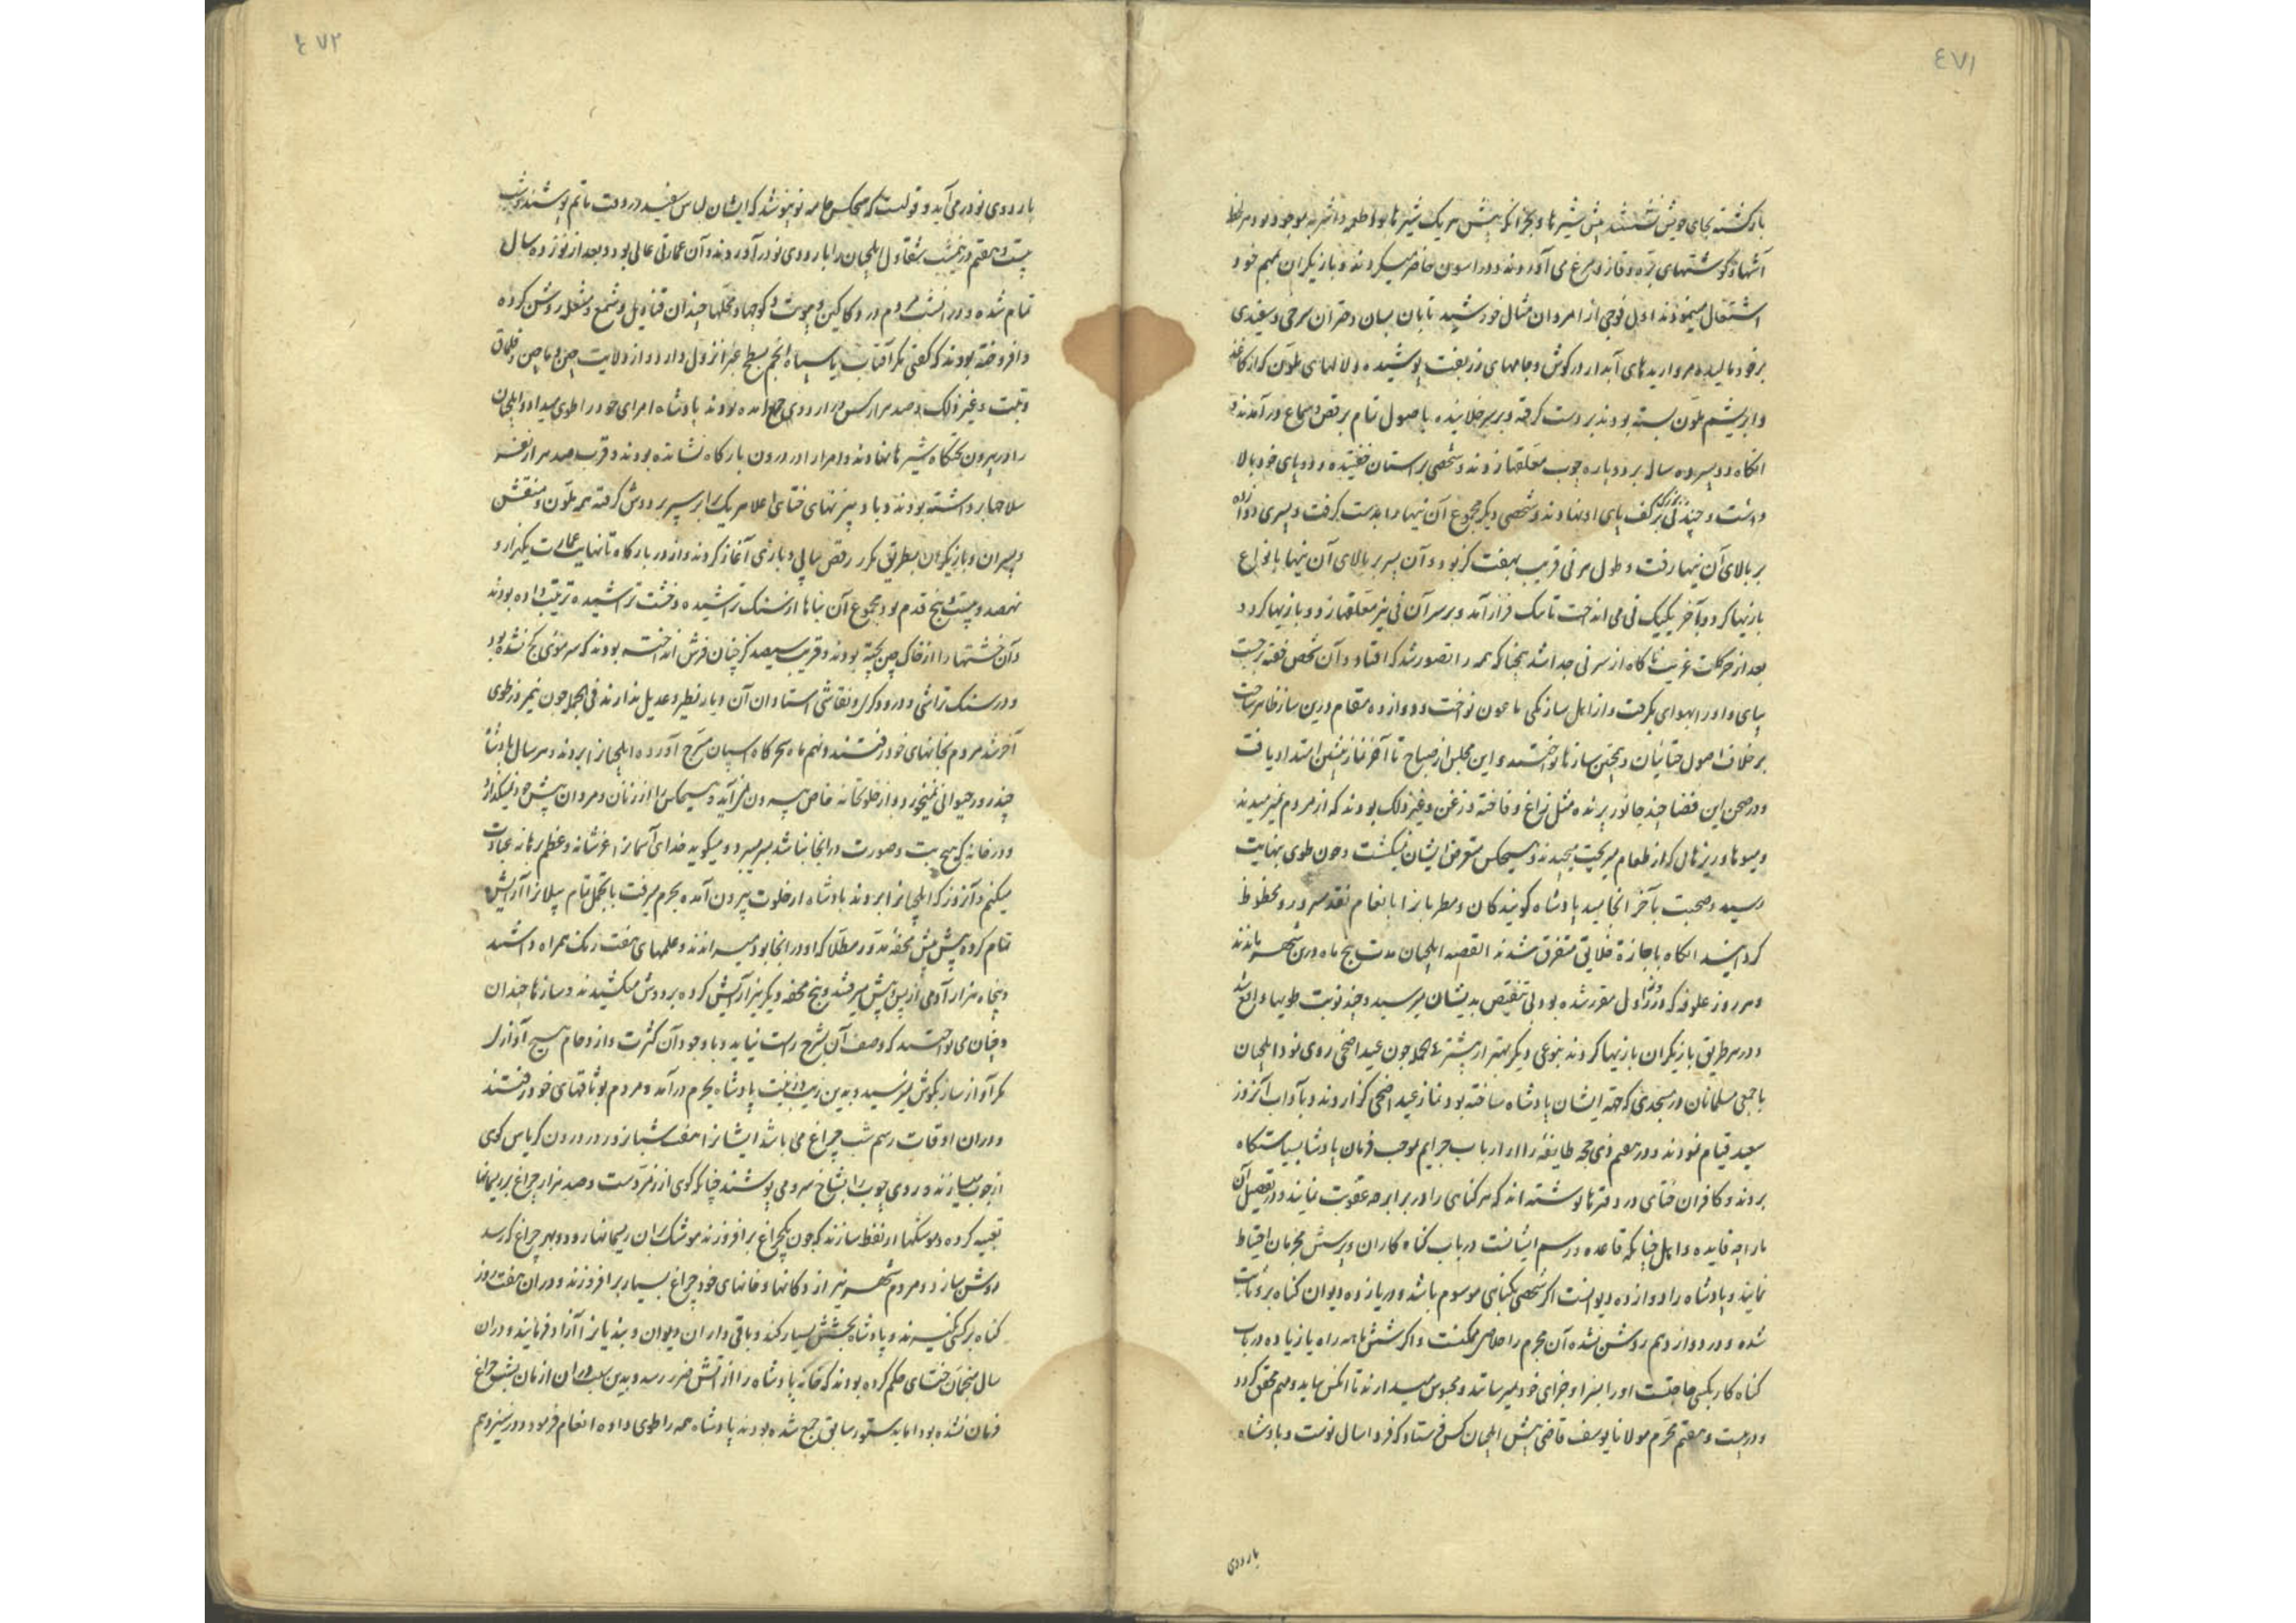 ٤٧١
بازگشته بجای خویش نشستند پیش شیرها و بجز آنکه پیش هر یک شیرها بود اطعمه و اشربه موجود بود هر لحظه
آشها و گوشتهای بره و قاز و مرغ می آوردند و دراسون حاضر میکردند و بازیگران بمهم خود
اشتغال مینمودند اول فوجی از امردان مثال خورشید تابان بسان دختران سرخی و سفیدی
بر خود مالیده مرواریدهای آبدار در گوش و جامهای زربفت پوشیده و لالهای ملون که از کاغذ
و ابریشم ملون بسته بودند بر دست گرفته و بر سر خلانیده باصول تمام برقص و سماع درآمدند
آنگاه دو پسر ده سال بر دو پاره چوب معلقها زدند و شخصی براستان خفتیده و دو پای خود بالا
داشت و چند نی بزرگ بر کف پای او نهادند و شخصی دیگر مجموع آن نیها را بدست گرفت و پسری دوازده
بر بالای آن نیها رفت و طول هر نی قریب بهفت گز بود و آن پسر بر بالای آن نیها بانواع
بازیها کرد و بآخر یکیک نی می انداخت تا یک فراز آمد و بر سر آن نی نیز معلقها زد و بازیها کرد
بعد از حرکات غریب ناگاه از سر نی جدا شد چنانکه همه را تصور شد که افتاد و آن شخص خفته برجست
بپای و او را در هوای بگرفت و از اهل ساز یکی یاعون نواخت و دوازده مقام درین ساز ظاهر ساخت
بر خلاف اصول ختائیان و همچنین سازها نواختند و این مجلس از صباح تا آخر نماز پیشین امتداد یافت
و در صحن این فضا چند جانور پرنده مثل زاغ و فاخته و زغن و غیر ذلک بودند که از مردم نمیرمیدند
و میوها و ریزهای که از طعام میریخت میچیدند و هیچکس متعرض ایشان نمیگشت و چون طوی بنهایت
رسید و صحبت بآخر انجامید پادشاه گویندگان و مطربانرا بانعام نقد مسرور و محظوظ
گردانید آنگاه باجازة خلایق متفرق شدند القصه ایلچیان مدت پنج ماه درین شهر ماندند
و هر روز علوفه که روز اول مقرر شده بود بی تنقیص بدیشان میرسید و چند نوبت طویها واقع شد
و در هر طریق بازیگران بازیها کردند بنوعی دیگر بهتر از پیشتر فی الجمله چون عید اضحی روی نمود ایلچیان
با جمعی مسلمانان در مسجدی که جهة ایشان پادشاه ساخته بود نماز عید اضحی گزاردند و بآداب آنروز
سعید قیام نمودند و در هفتم ذی حجه طایفه را از ارباب جرایم بموجب فرمان پادشاه بسیاستگاه
بردند و کافران ختای در دفترها نوشته اند که هر گناهی را در برابر چه عقوبت نمایند و در تفصیل آن
ما را چه فایده و اهل ختا چنانکه قاعده و رسم ایشانست در باب گناه کاران و پرسش مجرمان احتیاط
نمایند و پادشاه را دوازده دیوانست اگر شخصی بگناهی موسوم باشد و در یازده دیوان گناه برو ثابت
شده و در دوازدهم روشن نشده آن مجرم را خلاص ممکنست و اگر ششماهه راه یا زیاده در باب
گناه کار بکسی حاجتست او را بسزا و جزای خود نمیرسانند و محبوس میدارند تا آنکس بیاید و مهم محقق گردد
و در بیست و هفتم محرم مولانا یوسف قاضی پیش ایلچیان کس فرستاد که فردا سال نوست و پادشاه
باردوی
٤٧٢
باردوی نو در می آید و قولیست که هیچکس جامه نو نپوشد که ایشان لباس سفید در وقت ماتم پوشند و شب
بیست و هفتم در نیمشب شقاول ایلچیان را باردوی نو درآوردند و آن عمارتی عالی بود و بعد از نوزده سال
تمام شده و در آنشب مردم در دکاکین و بیوت و کوچها و محلها چندان قنادیل و شمع و مشعل روشن کرده
و افروخته بودند که گفتی مگر آفتاب با سپاه انجم بسطح غبرا نزول دارد و از ولایت چین و ماچین و قلماق
و تبت و غیر ذلک صد هزار کس در اردوی جمع آمده بودند پادشاه امرای خود را طوی میداد و ایلچیان
را در بیرون تختگاه شیرها نهادند و امرا را در درون بارگاه نشانده بودند و قرب صد هزار نفر
سلاحها برداشته بودند و بادبیزنهای ختای اعلا هر یک را بر سپر بر دوش گرفته همه ملون و منقش
و پسران و بازیگران بطریق مکرر رقص سالی و بازی آغاز کردند و از در بارگاه تا نهایت عمارت یکهزار و
نهصد و بیست و پنج قدم بود مجموع آن بناها از سنگ تراشیده و خشت تراشیده ترتیب داده بودند
و آن خشتها را از خاک چین پخته بودند و قریب سیصد گز چنان فرش انداخته بودند که سر موئی کج نشده بود
و در سنگ تراشی و درودگری و نقاشی استادان آن دیار نظیر و عدیل ندارند فی الجمله چون نیمروز طوی
آخر شد مردم بخانهای خود رفتند و نهم ماه سحرگاه اسپان مسرج آورده ایلچیانرا بردند و هر سال پادشاه
چند روز حیوانی نمیخورد و از خلوتخانه خاص بیرون نمی آید و هیچکس را از زنان و مردان پیش خود نمیگذارد
و در خانه که هیچ بت و صورت در آنجا نباشد بسر میبرد و میگوید خدای آسمانرا عز شانه و عظم برهانه عبادت
میکنم و آنروز که ایلچیانرا بردند پادشاه از خلوت بیرون آمده بحرم میرفت با تجمل تمام پیلانرا آرایش
تمام کرده پیش پیش محفه مدور مطلا که او در آنجا بود میراندند و علمهای هفت رنگ همراه داشتند
و پنجاه هزار آدمی از پس و پیش میرفتند و پنج محفه دیگر نیز آرایش کرده بر دوش میکشیدند و سازها چندان
و چنان می نواختند که وصف آن بشرح راست نیاید و با وجود آن کثرت و ازدحام هیچ آوازی
مگر آواز ساز بگوش نمیرسید و بدین زیب و زینت پادشاه بحرم درآمد و مردم بوثاقهای خود رفتند
و در آن اوقات رسم شب چراغ می باشد ایشانرا هفت شبانروز در درون کریاس کوی
از چوب میسازند و روی چوب را بشاخ سرو می پوشند چنانکه گوی از زمردست و صد هزار چراغ بر ریسمانها
تعبیه کرده و موشکها از نفط سازند که چون یکچراغ برافروزند موشک بر آن ریسمانها رود و بهر چراغ که رسد
روشن سازد و مردم شهر نیز از دکانها و خانهای خود چراغ بسیار برافروزند و در آن هفت روز
گناه بر کسی نگیرند و پادشاه بخشش بسیار کند و باقی داران دیوان و بندیانرا آزاد فرمایند و در آن
سال منجمان ختای حکم کرده بودند که خانه پادشاه را از آتش ضرر رسد و بدین سبب در آن ازمان بشب چراغ
فرمان نشده بود اما بدستور سابق جمع شده بودند پادشاه همه را طوی داده انعام فرمود و در سیزدهم